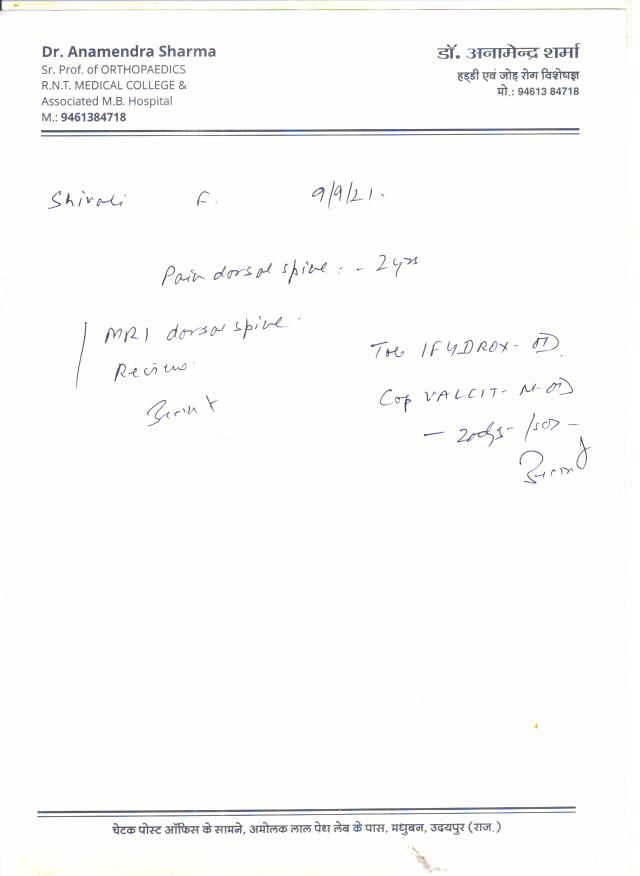 Dr. Anamendra Sharma
Sr. Prof. of ORTHOPAEDICS
R.N.T. MEDICAL COLLEGE &
Associated M.B. Hospital
M.: 9461384718
डॉ. अनामेन्द्र शर्मा
हड्डी एवं जोड़ रोग विशेषज्ञ
मो.: 94613 84718
Shivali F. 9/9/21.
Pain dorsal spine : - 2 yrs
MRI dorsal spine.
Review.
Tab IFYDROX - OD.
Cap VALCIT - M - OD
- 20 dys -
चेटक पोस्ट ऑफिस के सामने, अमोलक लाल पेथ लेब के पास, मधुबन, उदयपुर (राज.)